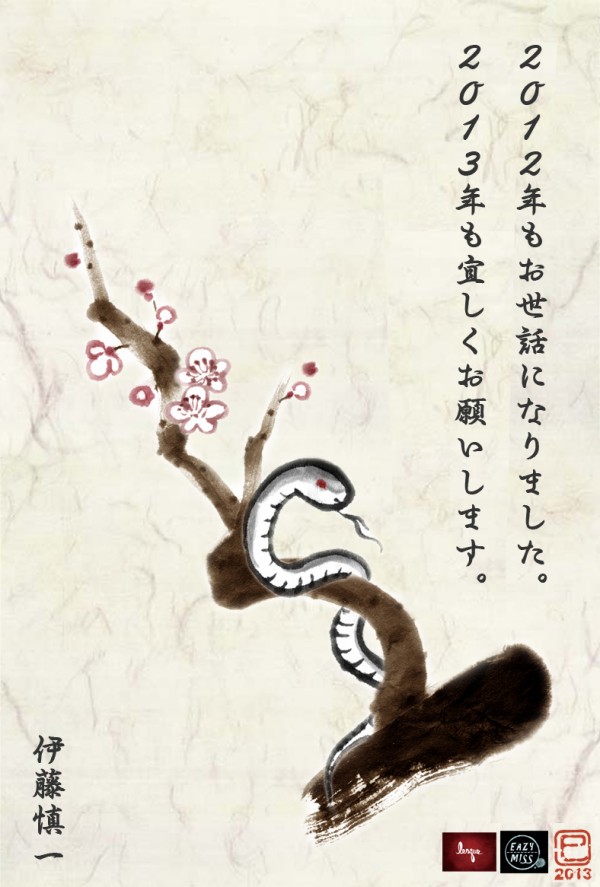 2012年もお世話になりました。
2013年も宜しくお願いします。
伊藤慎一
EAZY
MISS
巳
2013